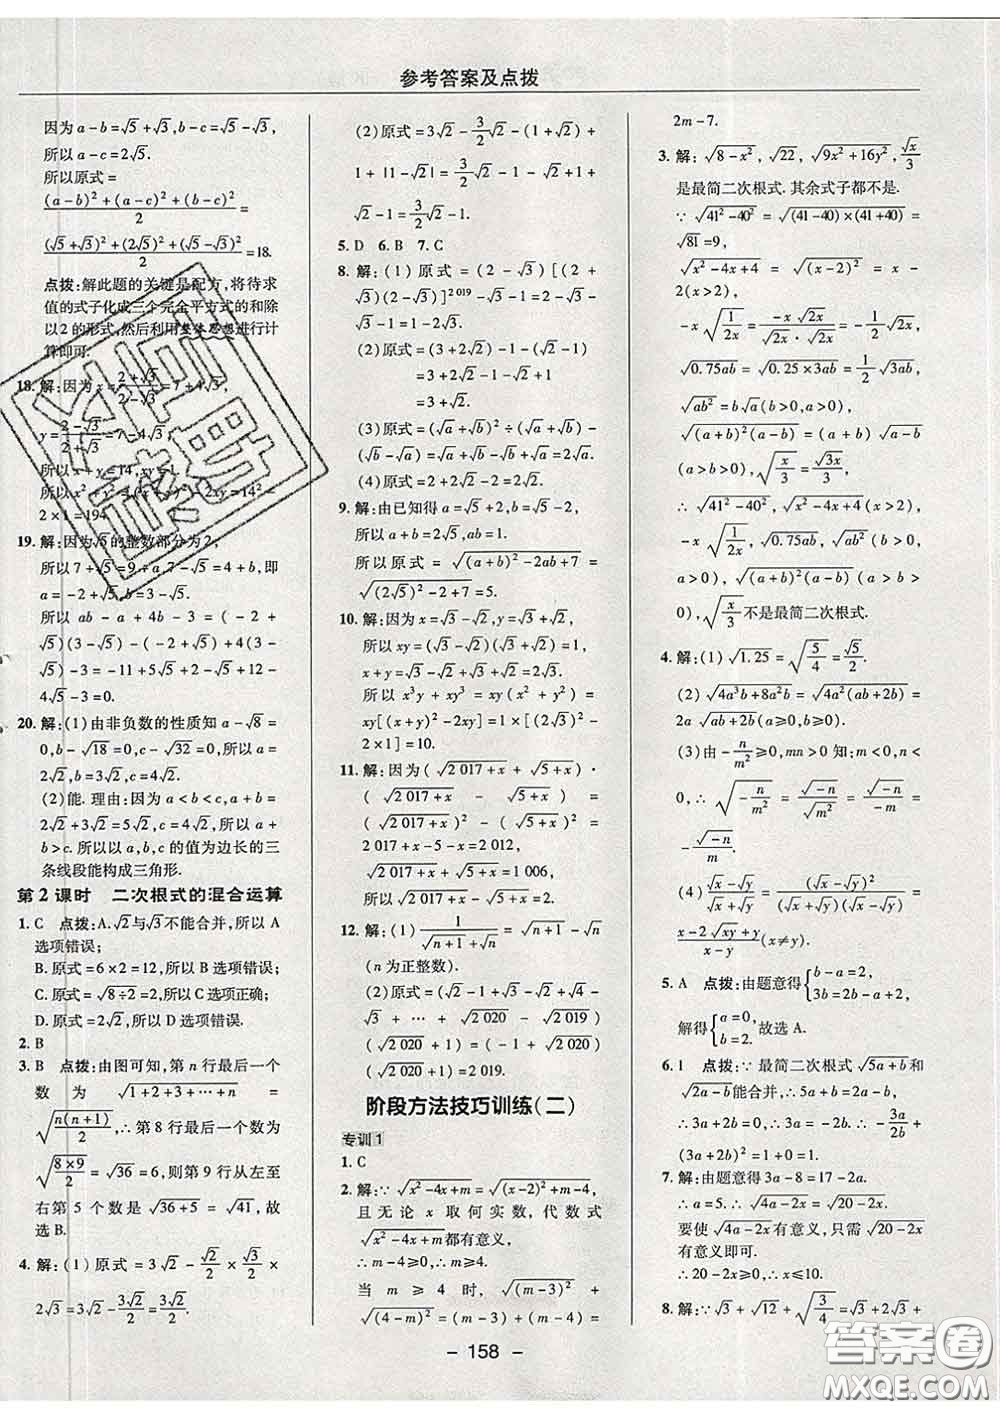 参考答案及点拨
因为a-b=√5+√3,b-c=√5-√3,
所以a-c=2√5.
所以原式=
((a-b)²+(a-c)²+(b-c)²)/2=
((√5+√3)²+(2√5)²+(√5-√3)²)/2=18.
点拨:解此题的关键是配方,将待求
值的式子化成三个完全平方式的和除
以2的形式,然后利用整体思想进行计
算即可.
18.解:因为x=(2+√3)/(2-√3)=7+4√3,
y=(2-√3)/(2+√3)=7-4√3,
所以x+y=14,xy=1.
所以x²+y²=(x+y)²-2xy=14²-
2×1=194.
19.解:因为√5的整数部分为2,
所以7+√5=9+a,7-√5=4+b,即
a=-2+√5,b=3-√5.
所以 ab-a+4b-3=(-2+
√5)(3-√5)-(-2+√5)+4(3-
√5)-3=-11+5√5+2-√5+12-
4√5-3=0.
20.解:(1)由非负数的性质知a-√8=
0,b-√18=0,c-√32=0,所以a=
2√2,b=3√2,c=4√2.
(2)能.理由:因为a<b<c,a+b=
2√2+3√2=5√2,c=4√2,所以a+
b>c.a,b,c的值为边长的三
条线段能构成三角形.
第2课时 二次根式的混合运算
1.C 点拨:A.√2与√3不能合并,所以A
选项错误;
B.原式=6×2=12,所以B选项错误;
C.原式=√(8÷2)=2,所以C选项正确;
D.原式=2√2,所以D选项错误.
2.B
3.B 点拨:由图可知,第n行最后一个
数为√(1+2+3+…+n)=
√(n(n+1)/2),∴第8行最后一个数为
√(8×9/2)=√36=6,则第9行从左至
右第5个数是√(36+5)=√41,故
选B.
4.解:(1)原式=3√2-√2/2×√3/2×
2√3=3√2-3√2/2=3√2/2.
(2)原式=3√2-(3/2)√2-(1-√2)+
1+|1-√2|=(3/2)√2-1+√2+1+
√2-1=(3/2)√2-1+√2+1+
5.D 6.B 7.C
8.解:(1)原式=(2-√3)[(2+
√3)(2-√3)]²⁰¹⁹-√3-1=2-
(2)原式=(3+2√2)-(√2-1)+1
=3+2√2-√2+1+1
(3)原式=(√a+√b)²÷(√a+√b)-
(√b-√a)=√a+√b-√b+√a=2√a.
(4)原式=2+2√2-2=2√2.
9.解:由已知得a=√5+2,b=√5-2,
所以a+b=2√5,ab=1.
所以原式=√((a+b)²-2ab+7)=
√((2√5)²-2+7)=5.
10.解:因为x=√3-√2,y=√3+√2,
所以xy=(√3-√2)(√3+√2)=1,
x+y=√3-√2+√3+√2=2√3.
所以x³y+xy³=xy(x²+y²)=
xy[(x+y)²-2xy]=1×[(2√3)²-
2×1]=10.
11.解:因为(√(2 017+x)+√(5+x))·
(√(2 017+x)-√(5+x))=
(√(2 017+x))²-(√(5+x))²=
2 017+x-5-x=2 012,
√(2 017+x)-√(5+x)=2,
所以√(2 017+x)+√(5+x)=
12.解:(1)1/(√(n+1)+√n)=√(n+1)-√n
(n为正整数).
(2)原式=(√2-1+√3-√2+√4-
√3+…+√2 020-√2 019)
(√2 020+1)=(-1+√2 020)
(√2 020+1)=2 019.
阶段方法技巧训练(二)
专训1
1.C
2.解:∵√(x²-4x+m)=√((x-2)²+m-4),
且无论x取何实数,代数式
√(x²-4x+m)都有意义,
∴m-4≥0,∴m≥4.
当m≥4时,√((m-3)²)+
√((4-m)²)=(m-3)+(m-4)=
2m-7.
3.解:√(8-x²),√22,√(9x²+16y²),√x/3
是最简二次根式.其余式子都不是.
∵√(41²-40²)=√((41-40)×(41+40))=
√81=9,
√(x²-4x+4)=√((x-2)²)=x-
2(x>2),
-x√(1/(2x))=(-x√(2x))/(2x)=-(1/2)√(2x),
√(0.75ab)=√(0.25×3ab)=(1/2)√(3ab),
√(ab²)=b√a(b>0,a>0),
√((a+b)²(a-b))=(a+b)√(a-b)
(a>b>0),√(x/3)=√(3x)/3,
∴√(41²-40²),√(x²-4x+4)(x>2),
-x√(1/(2x)),√(0.75ab),√(ab²)(b>0,
a>0),√((a+b)²(a-b))(a>b>
0),√(x/3)不是最简二次根式.
4.解:(1)√1.25=√(5/4)=√5/2.
(2)√(4a³b+8a²b)=√(4a²(ab+2b))=
2a√(ab+2b)(a≥0,b≥0).
(3)由-n/m²≥0,mn>0知:m<0,n<
0,∴√(-n/m²)=√(-n)/√(m²)=√(-n)/(-m)=
-√(-n)/m.
(4)(√x-√y)/(√x+√y)=(√x-√y)²/((√x+√y)(√x-√y))=
(x-2√(xy)+y)/(x-y)(x≠y).
5.A 点拨:由题意得{b-a=2,
3b=2b-a+2,
解得{a=0,
b=2.故选A.
6.1 点拨:∵最简二次根式√(5a+b)和
√(2a-b)能合并,∴5a+b=2a-b,
∴3a+2b=0,∴3a=-2b,∴3a/2b=-1,
∴(3a+2b)²+1=0+1=1.
7.解:由题意得3a-8=17-2a.
∴a=5.∴√(4a-2x)=√(20-2x).
要使√(4a-2x)有意义,只需√(20-2x)
有意义即可.
∴20-2x≥0,∴x≤10.
8.解:∵√3+√12+√(3/4)=√3+2√3+
- 158 -
答案卷
MXQE.COM